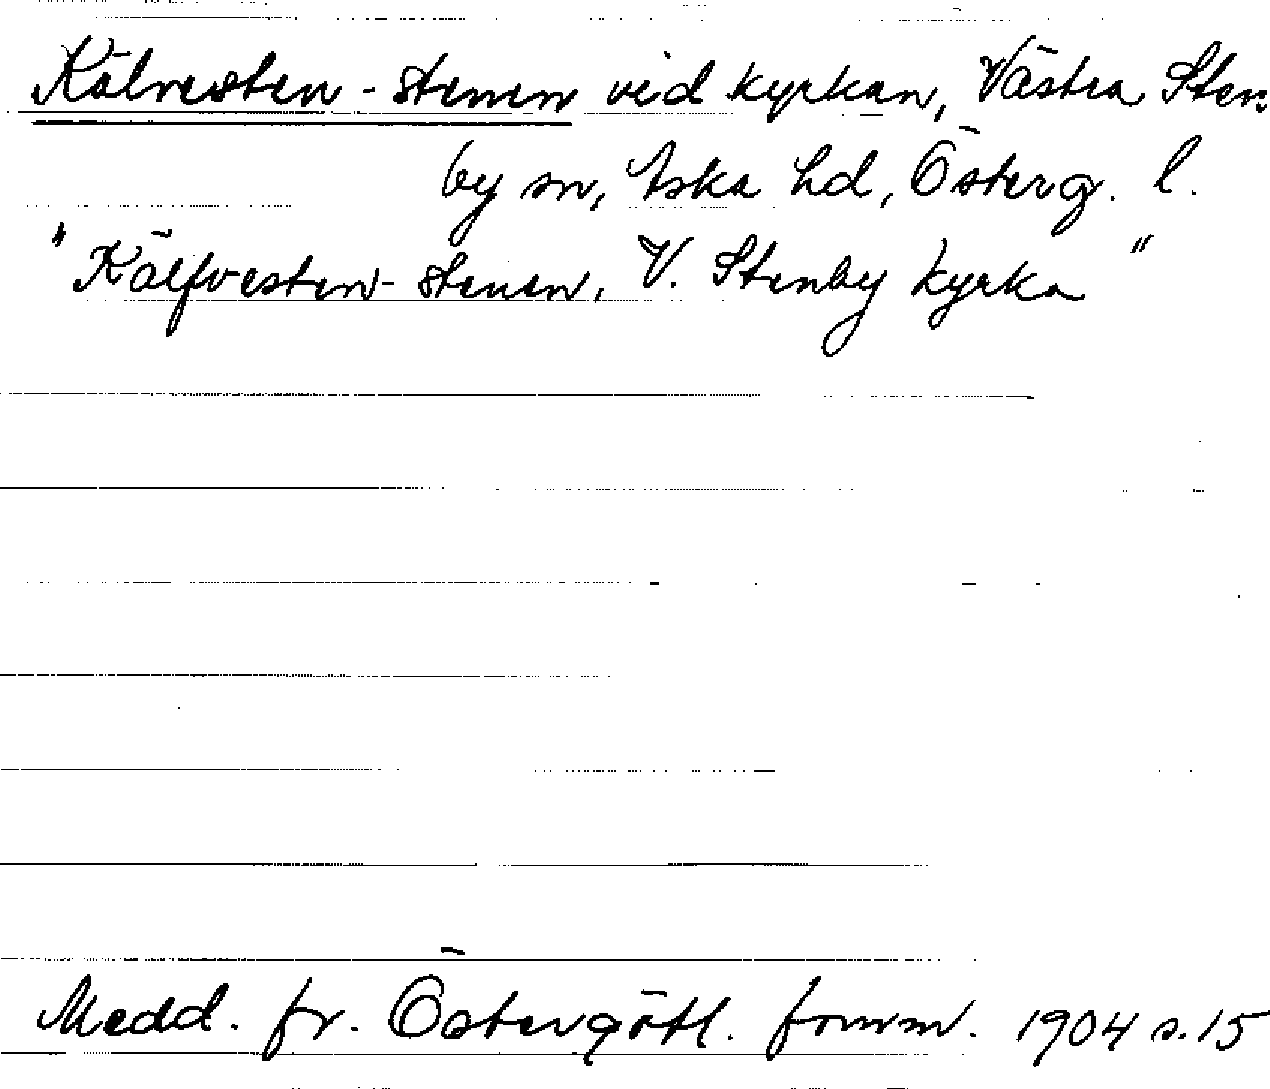 Kälvesten-stenen vid kyrkan, Västra Sten-
by sn, Aska hd, Österg. l.
"Kälfvesten-stenen, V. Stenby kyrka"
Medd. fr. Östergötl. fornm. 1904 s. 15